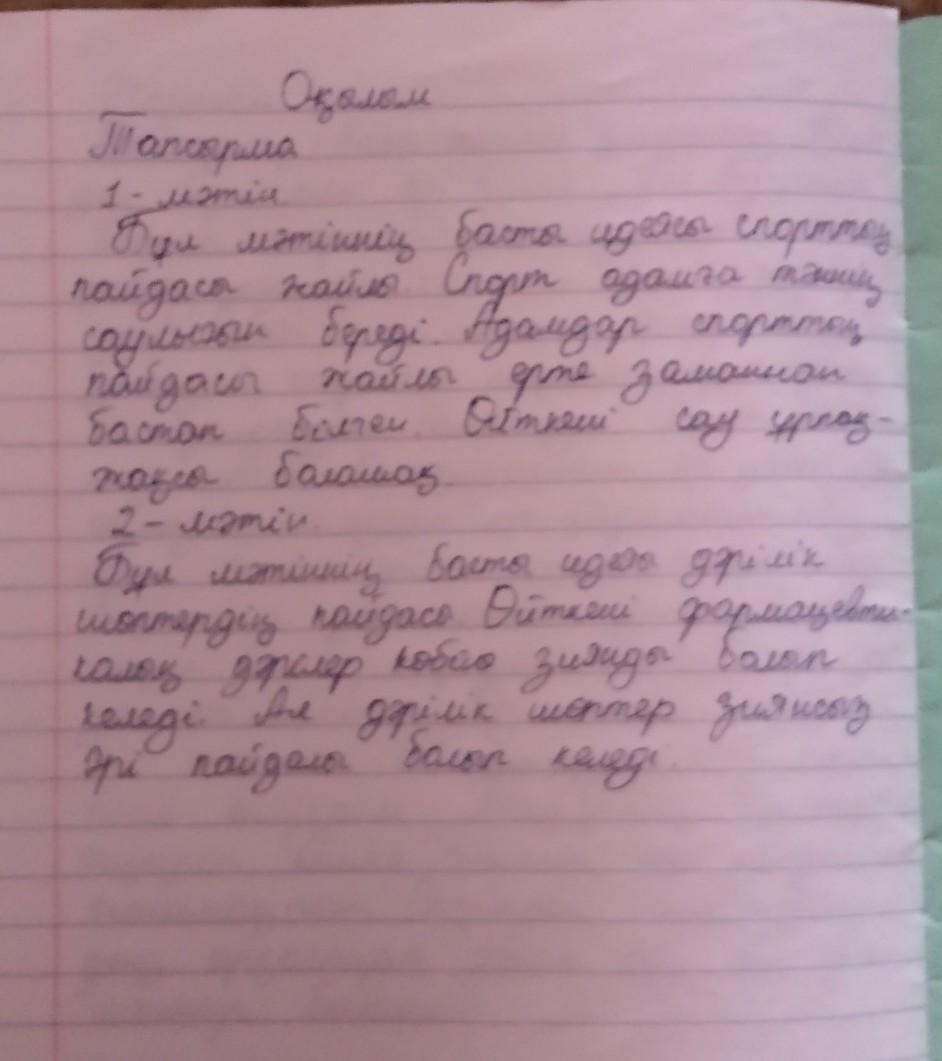 Оқылым
Тапсырма
1 - мәтін
Бұл мәтіннің басты идеясы спорттың
пайдасы жайлы. Спорт адамға тәннің
саулығын береді. Адамдар спорттың
пайдасы жайлы ерте заманнан
бастап білген. Өйткені сау ұрпақ-
жақсы болашақ.
2 - мәтін.
Бұл мәтіннің басты идеясы дәрілік
шөптердің пайдасы Өйткені фармацевти-
калық дәрілер көбіне зиянды болып
келеді. Ал дәрілік шөптер зиянсыз
әрі пайдалы болып келеді.